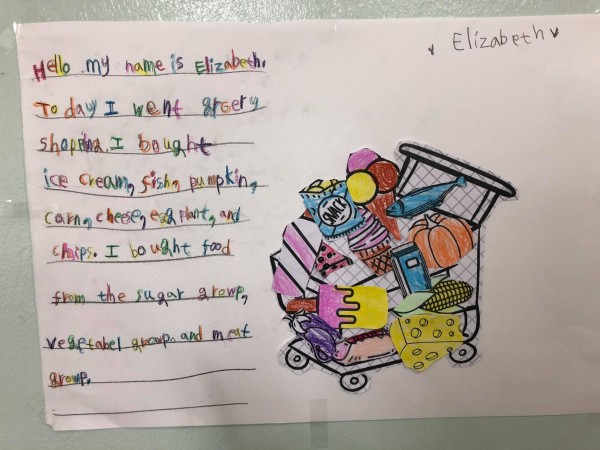 Elizabeth
Hello my name is Elizabeth.
To day I went grsery
shopping. I bought
ice cream, fish, pumpkin,
carn, cheese, eggplant, and
chips. I bought food
from the sugar growp,
vegetabel growp and meat
growp.
SNACK